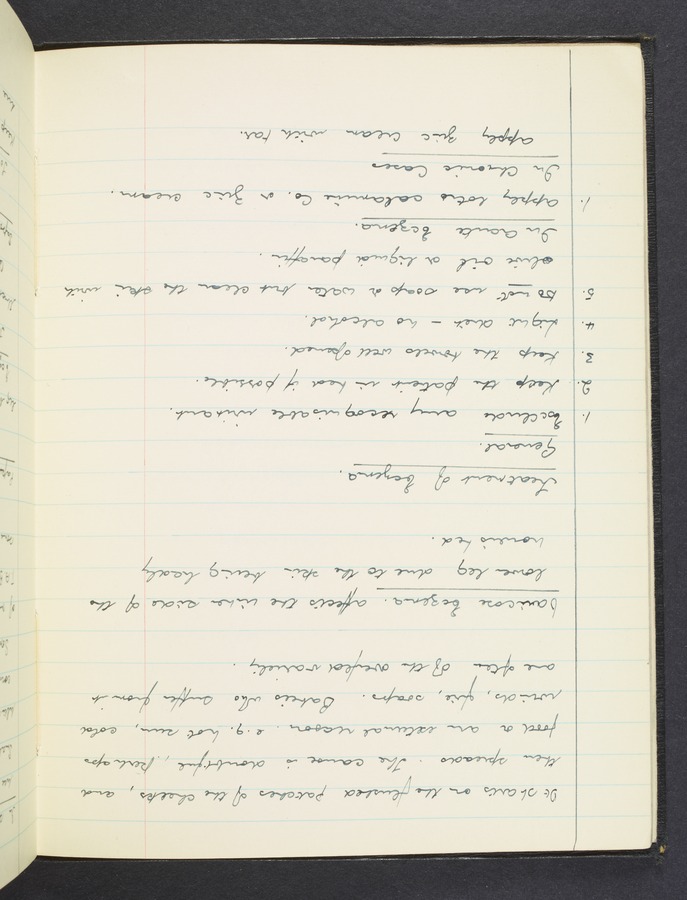 It starts on the flushed patches of the cheeks, and
then spreads. The cause is doubtful, Perhaps
food or an external reason. e.g. hot sun, cold
winds, fire, soaps. Babies who suffer from it
are often of the overfed variety.
Varicose Eczema. affects the inner side of the
lower leg due to the skin being badly
nourished.
Treatment of Eczema.
General.
1. Exclude any recognisable irritant.
2. Keep the patient in bed if possible.
3. Keep the bowels well opened.
4. Light diet – no alcohol.
5. Do not use soap or water but clean the skin with
olive oil or liquid paraffin.
In acute Eczema.
1. Apply lotio calamine Co. or Zinc cream.
In Chronic Cases
apply Zinc Cream with tar.